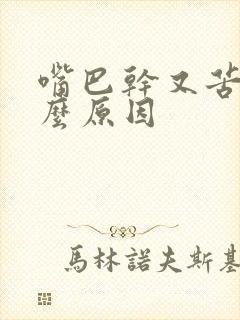 嘴巴幹又苦
麼原因
馬林諾夫斯基